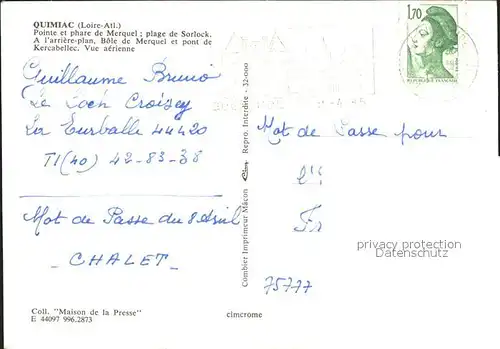 QUIMIAC (Loire-Atl.)
Pointe et phare de Merquel ; plage de Sorlock.
A l'arrière-plan, Bôle de Merquel et pont de
Kercabellec. Vue aérienne
1,70
Guillaume Bruno
Le Loch Croisey
La Turballe 44420
Tl (40) 42-83-38
Mot de Passe du 8 Avril
- CHALET -
Coll. "Maison de la Presse"
E 44097 996.2873
Combier Imprimeur Mâcon
Repro. Interdite - 32-000
cimcrome
Mot de Passe pour
l'
Fr
75777
privacy protection
watermark for
ansichtskarten-lexikon.de